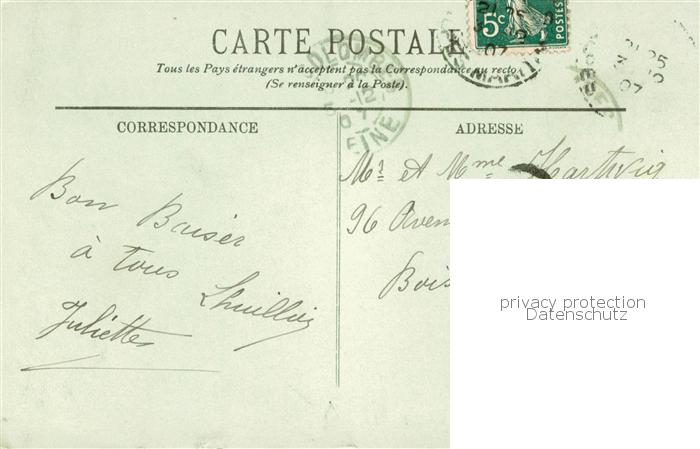 CARTE POSTALE
Tous les Pays étrangers n'acceptent pas la Correspondance au recto
(Se renseigner à la Poste).
CORRESPONDANCE
ADRESSE
5c
POSTES
COLOMBES
SEINE
Mr et Mme Hartvig
96 Aven
Bois
Bon Baiser
à tous Lhuillier
Juliette
privacy protection
Datenschutz